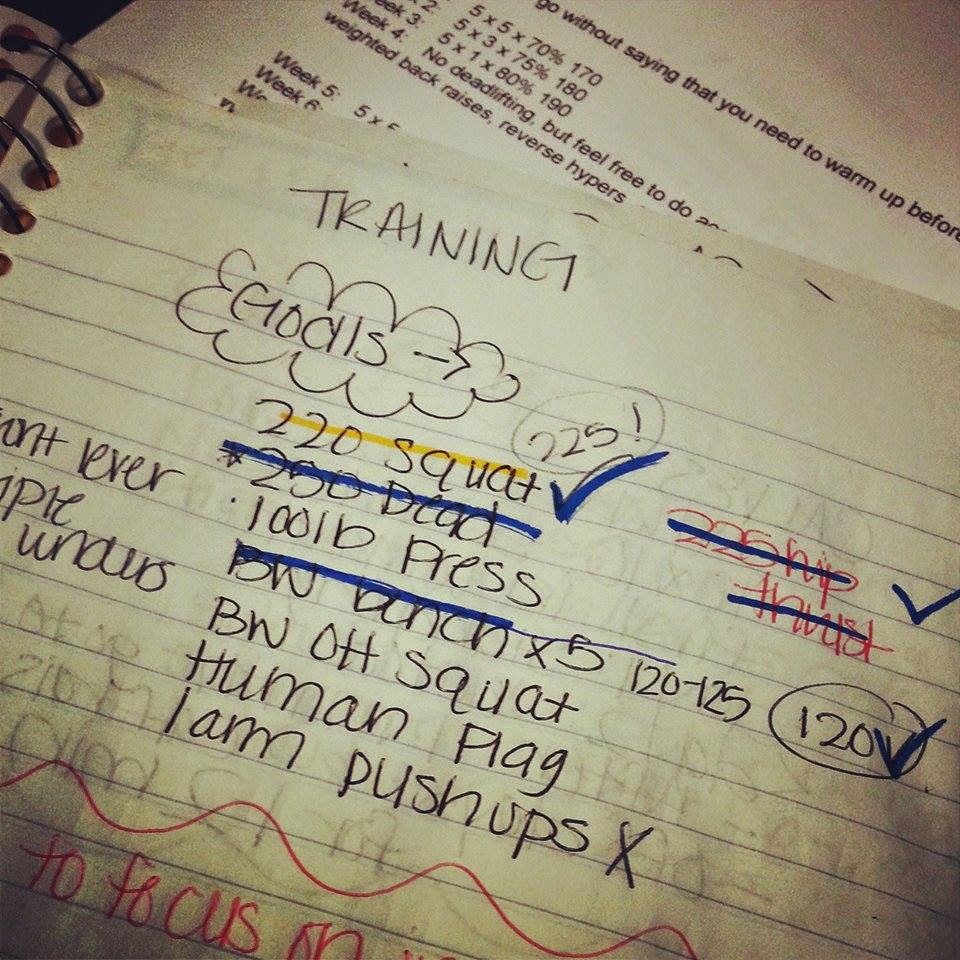 go without saying that you need to warm up before
5 x 5 x 70% 170
Week 3: 5 x 3 x 75% 180
Week 4: 5 x 1 x 80% 190
No deadlifting, but feel free to do
weighted back raises, reverse hypers
Week 5: 5 x
Week 6
TRAINING
Goals →
220 squat 225!
*250 Dead
.100lb Press
BW bench x5 120-125 120
BW OH squat
Human Flag
1 arm pushups X
lever
unders
225 hip
thrust
to focus on